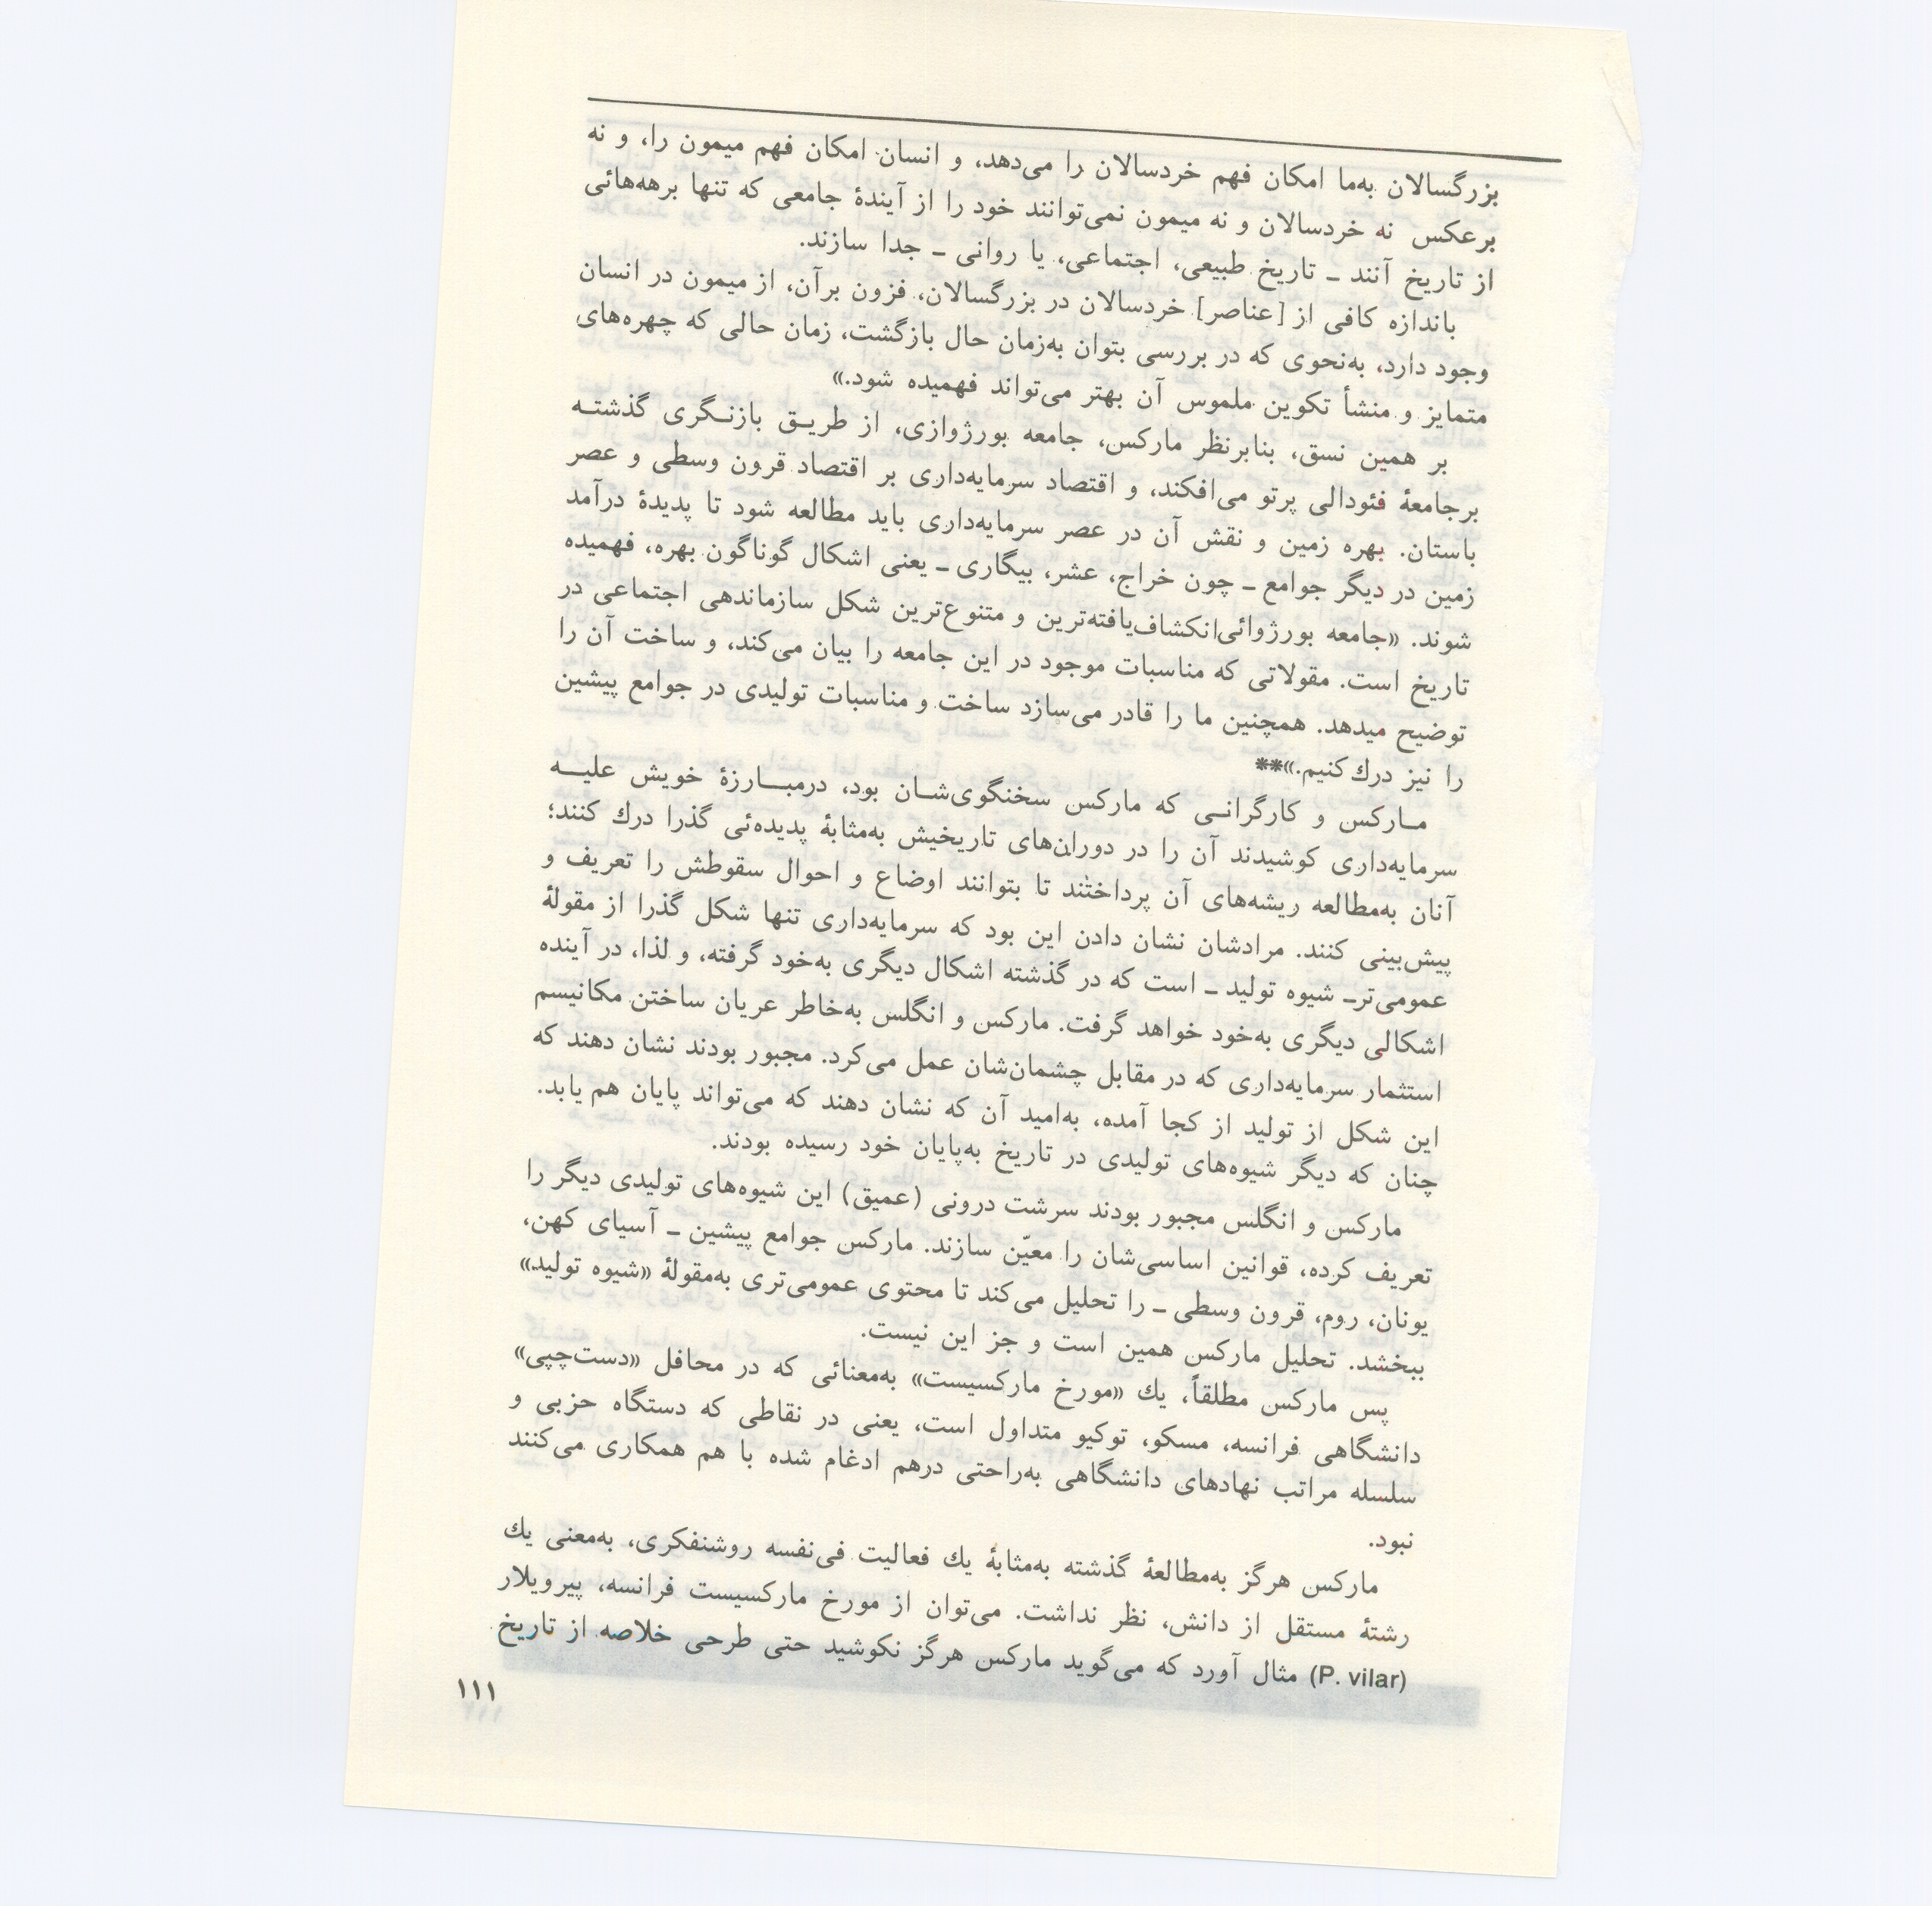 بزرگسالان به‌ما امکان فهم خردسالان را می‌دهد، و انسان امکان فهم میمون را، و نه
برعکس نه خردسالان و نه میمون نمی‌توانند خود را از آیندهٔ جامعی که تنها برهه‌هائی
از تاریخ آنند ـ تاریخ طبیعی، اجتماعی، یا روانی ـ جدا سازند.
باندازه کافی از [عناصر] خردسالان در بزرگسالان، فزون برآن، از میمون در انسان
وجود دارد، به‌نحوی که در بررسی بتوان به‌زمان حال بازگشت، زمان حالی که چهره‌های
متمایز و منشأ تکوین ملموس آن بهتر می‌تواند فهمیده شود.»
بر همین نسق، بنابرنظر مارکس، جامعه بورژوازی، از طریـق بازنـگری گذشتـه
برجامعهٔ فئودالی پرتو می‌افکند، و اقتصاد سرمایه‌داری بر اقتصاد قرون وسطی و عصر
باستان. بهره زمین و نقش آن در عصر سرمایه‌داری باید مطالعه شود تا پدیدهٔ درآمد
زمین در دیگر جوامع ـ چون خراج، عشر، بیگاری ـ یعنی اشکال گوناگون بهره، فهمیده
شوند. «جامعه بورژوائی‌انکشاف‌یافته‌ترین و متنوع‌ترین شکل سازماندهی اجتماعی در
تاریخ است. مقولاتی که مناسبات موجود در این جامعه را بیان می‌کند، و ساخت آن را
توضیح میدهد. همچنین ما را قادر می‌سازد ساخت و مناسبات تولیدی در جوامع پیشین
را نیز درك کنیم.»**
مـارکس و کارگرانـی که مارکس سخنگوی‌شـان بود، درمبـــارزهٔ خویش علیـــه
سرمایه‌داری کوشیدند آن را در دوران‌های تاریخیش به‌مثابهٔ پدیده‌ئی گذرا درك کنند؛
آنان به‌مطالعه ریشه‌های آن پرداختند تا بتوانند اوضاع و احوال سقوطش را تعریف و
پیش‌بینی کنند. مرادشان نشان دادن این بود که سرمایه‌داری تنها شکل گذرا از مقولهٔ
عمومی‌ترـ شیوه تولید ـ است که در گذشته اشکال دیگری به‌خود گرفته، و لذا، در آینده
اشکالی دیگری به‌خود خواهد گرفت. مارکس و انگلس به‌خاطر عریان ساختن مکانیسم
استثمار سرمایه‌داری که در مقابل چشمان‌شان عمل می‌کرد. مجبور بودند نشان دهند که
این شکل از تولید از کجا آمده، به‌امید آن که نشان دهند که می‌تواند پایان هم یابد.
چنان که دیگر شیوه‌های تولیدی در تاریخ به‌پایان خود رسیده بودند.
مارکس و انگلس مجبور بودند سرشت درونی (عمیق) این شیوه‌های تولیدی دیگر را
تعریف کرده، قوانین اساسی‌شان را معیّن سازند. مارکس جوامع پیشین ـ آسیای کهن،
یونان، روم، قرون وسطی ـ را تحلیل می‌کند تا محتوی عمومی‌تری به‌مقولهٔ «شیوه تولید»
ببخشد. تحلیل مارکس همین است و جز این نیست.
پس مارکس مطلقاً، یك «مورخ مارکسیست» به‌معنائی که در محافل «دست‌چپی»
دانشگاهی فرانسه، مسکو، توکیو متداول است، یعنی در نقاطی که دستگاه حزبی و
سلسله مراتب نهادهای دانشگاهی به‌راحتی درهم ادغام شده با هم همکاری می‌کنند
نبود.
مارکس هرگز به‌مطالعهٔ گذشته به‌مثابهٔ یك فعالیت فی‌نفسه روشنفکری، به‌معنی یك
رشتهٔ مستقل از دانش، نظر نداشت. می‌توان از مورخ مارکسیست فرانسه، پیرویلار
(P. vilar) مثال آورد که می‌گوید مارکس هرگز نکوشید حتی طرحی خلاصه از تاریخ
۱۱۱